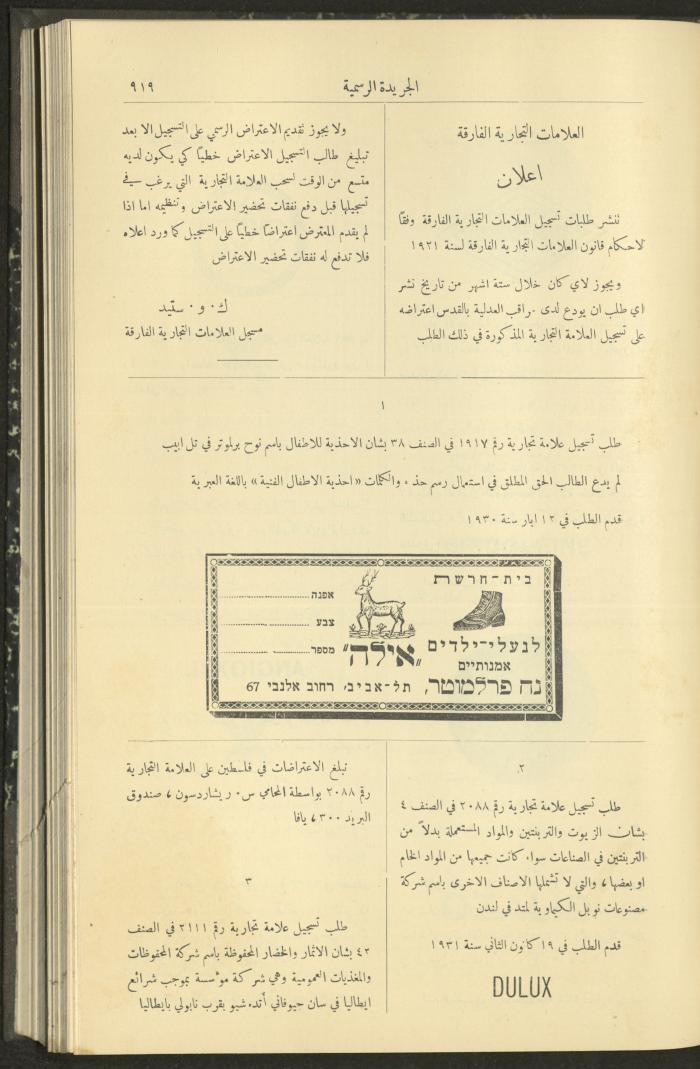 الجريدة الرسمية
٩١٩
العلامات التجارية الفارقة
اعلان
تنشر طلبات تسجيل العلامات التجارية الفارقة وفقًا
لاحكام قانون العلامات التجارية الفارقة لسنة ١٩٢١
ويجوز لاي كان خلال ستة اشهر من تاريخ نشر
اي طلب ان يودع لدى مراقب العدلية بالقدس اعتراضه
على تسجيل العلامة التجارية المذكورة في ذلك الطلب
ولا يجوز تقديم الاعتراض الرسمي على التسجيل الا بعد
تبليغ طالب التسجيل الاعتراض خطيًا كي يكون لديه
متسع من الوقت لسحب العلامة التجارية التي يرغب في
تسجيلها قبل دفع نفقات تحضير الاعتراض وتنظيمه اما اذا
لم يقدم المعترض اعتراضًا خطيًا على التسجيل كما ورد اعلاه
فلا تدفع له نفقات تحضير الاعتراض
ك. و. ستيد
مسجل العلامات التجارية الفارقة
١
طلب تسجيل علامة تجارية رقم ١٩١٧ في الصنف ٣٨ بشان الاحذية للاطفال باسم نوح برلموتر في تل ابيب
لم يدع الطالب الحق المطلق في استعمال رسم حذاء والكلمات «احذية الاطفال الفنية» باللغة العبرية
قدم الطلب في ١٢ ايار سنة ١٩٣٠
בית-חרשת
לנעלי-ילדים
אמנותיים
נח פרלמוטר, תל-אביב, רחוב אלנבי 67
"אילה"
אפנה
צבע
מספר
٢
طلب تسجيل علامة تجارية رقم ٢٠٨٨ في الصنف ٤
بشان الزيوت والتربنتين والمواد المستعملة بدلاً من
التربنتين في الصناعات سواء كانت جميعها من المواد الخام
او بعضها، والتي لا تشملها الاصناف الاخرى باسم شركة
مصنوعات نوبل الكيماوية لمتد في لندن
قدم الطلب في ١٩ كانون الثاني سنة ١٩٣١
DULUX
تبلغ الاعتراضات في فلسطين على العلامة التجارية
رقم ٢٠٨٨ بواسطة المحامي س. ريشاردسون، صندوق
البريد ٣٠٠، يافا
٣
طلب تسجيل علامة تجارية رقم ٢١١١ في الصنف
٤٢ بشان الاثمار والخضار المحفوظة باسم شركة المحفوظات
والمغذيات العمومية وهي شركة مؤسسة بموجب شرائع
ايطاليا في سان جيوفاني أتدشيو بقرب نابولي بايطاليا